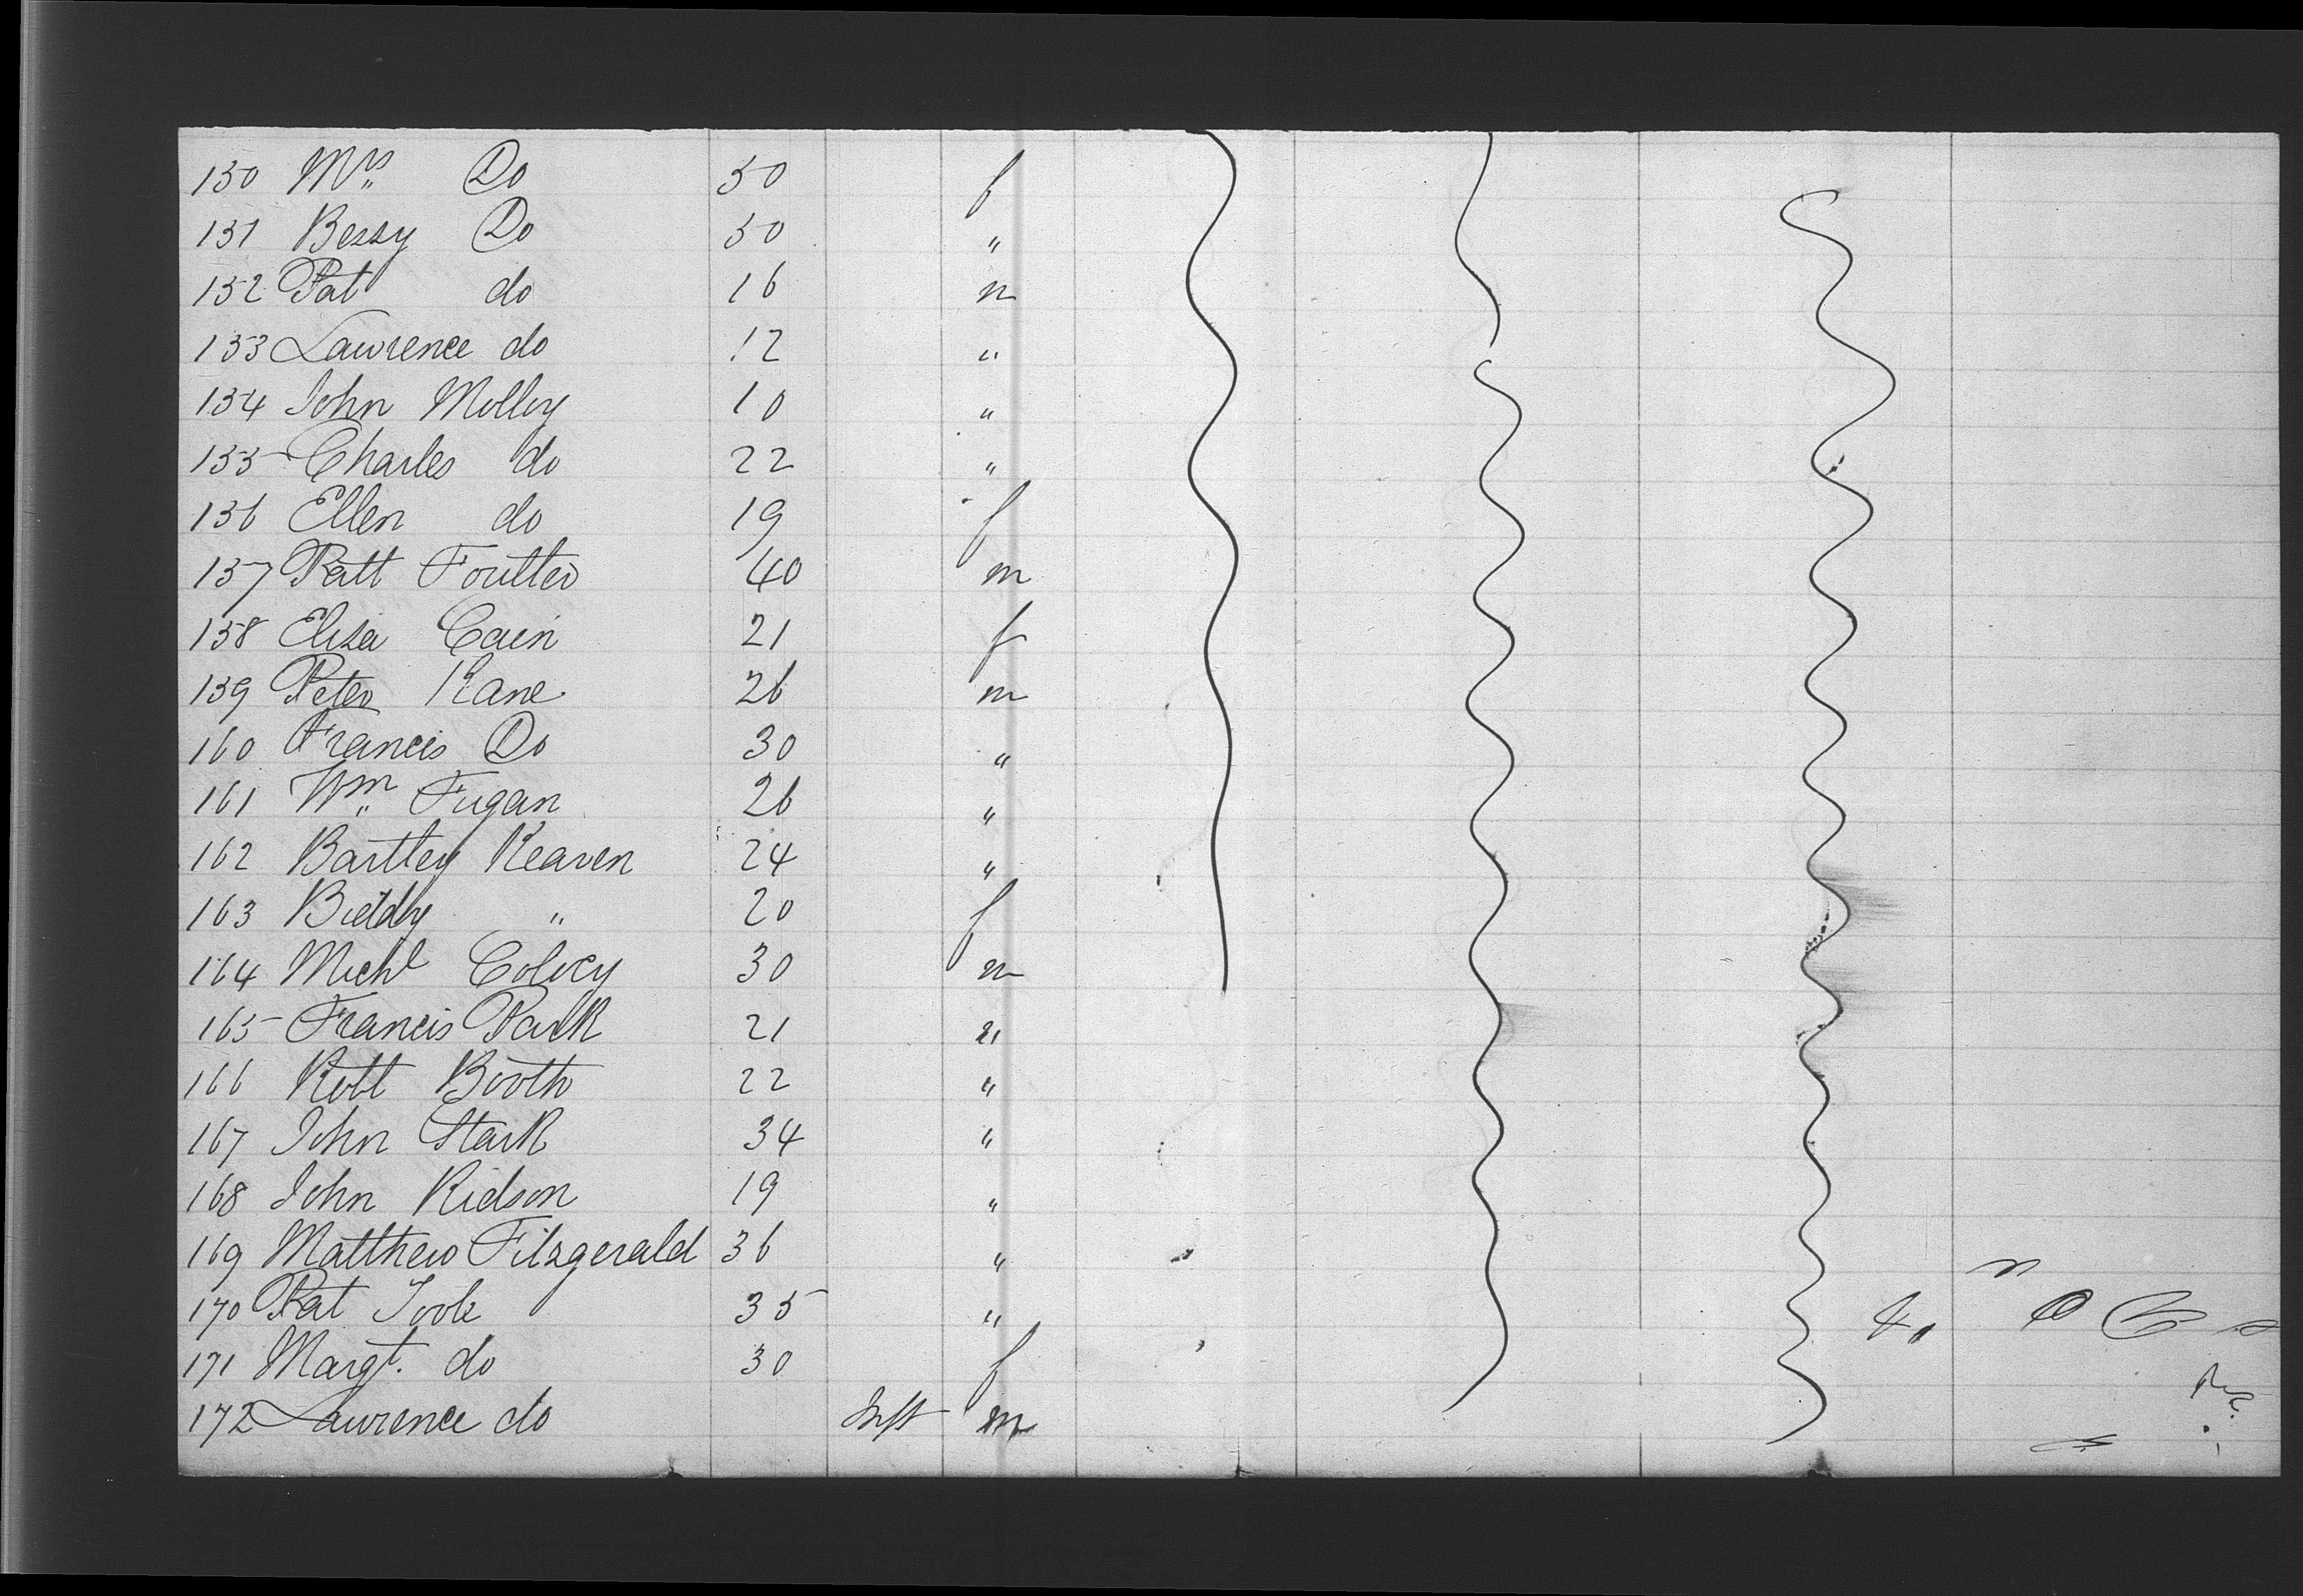 150 Mrs Do 50 f
151 Bessy Do 50 "
152 Pat do 16 m
153 Lawrence do 12 "
154 John Molloy 10 "
155 Charles do 22 "
156 Ellen do 19 f
157 Patt Foulter 40 m
158 Eliza Cain 21 f
159 Peter Kane 26 m
160 Francis Do 30 "
161 Wm Fugan 26 "
162 Bartley Keaven 24 "
163 Biddy " 20 f
164 Michl 30 m
165 Francis Park 21 "
166 Robt Booth 22 "
167 John Stark 34 "
168 John Ridson 19 "
169 Matthew Fitzgerald 36 "
170 Pat Toole 35 "
171 Margt. do 30 f
172 Lawrence do Inft m